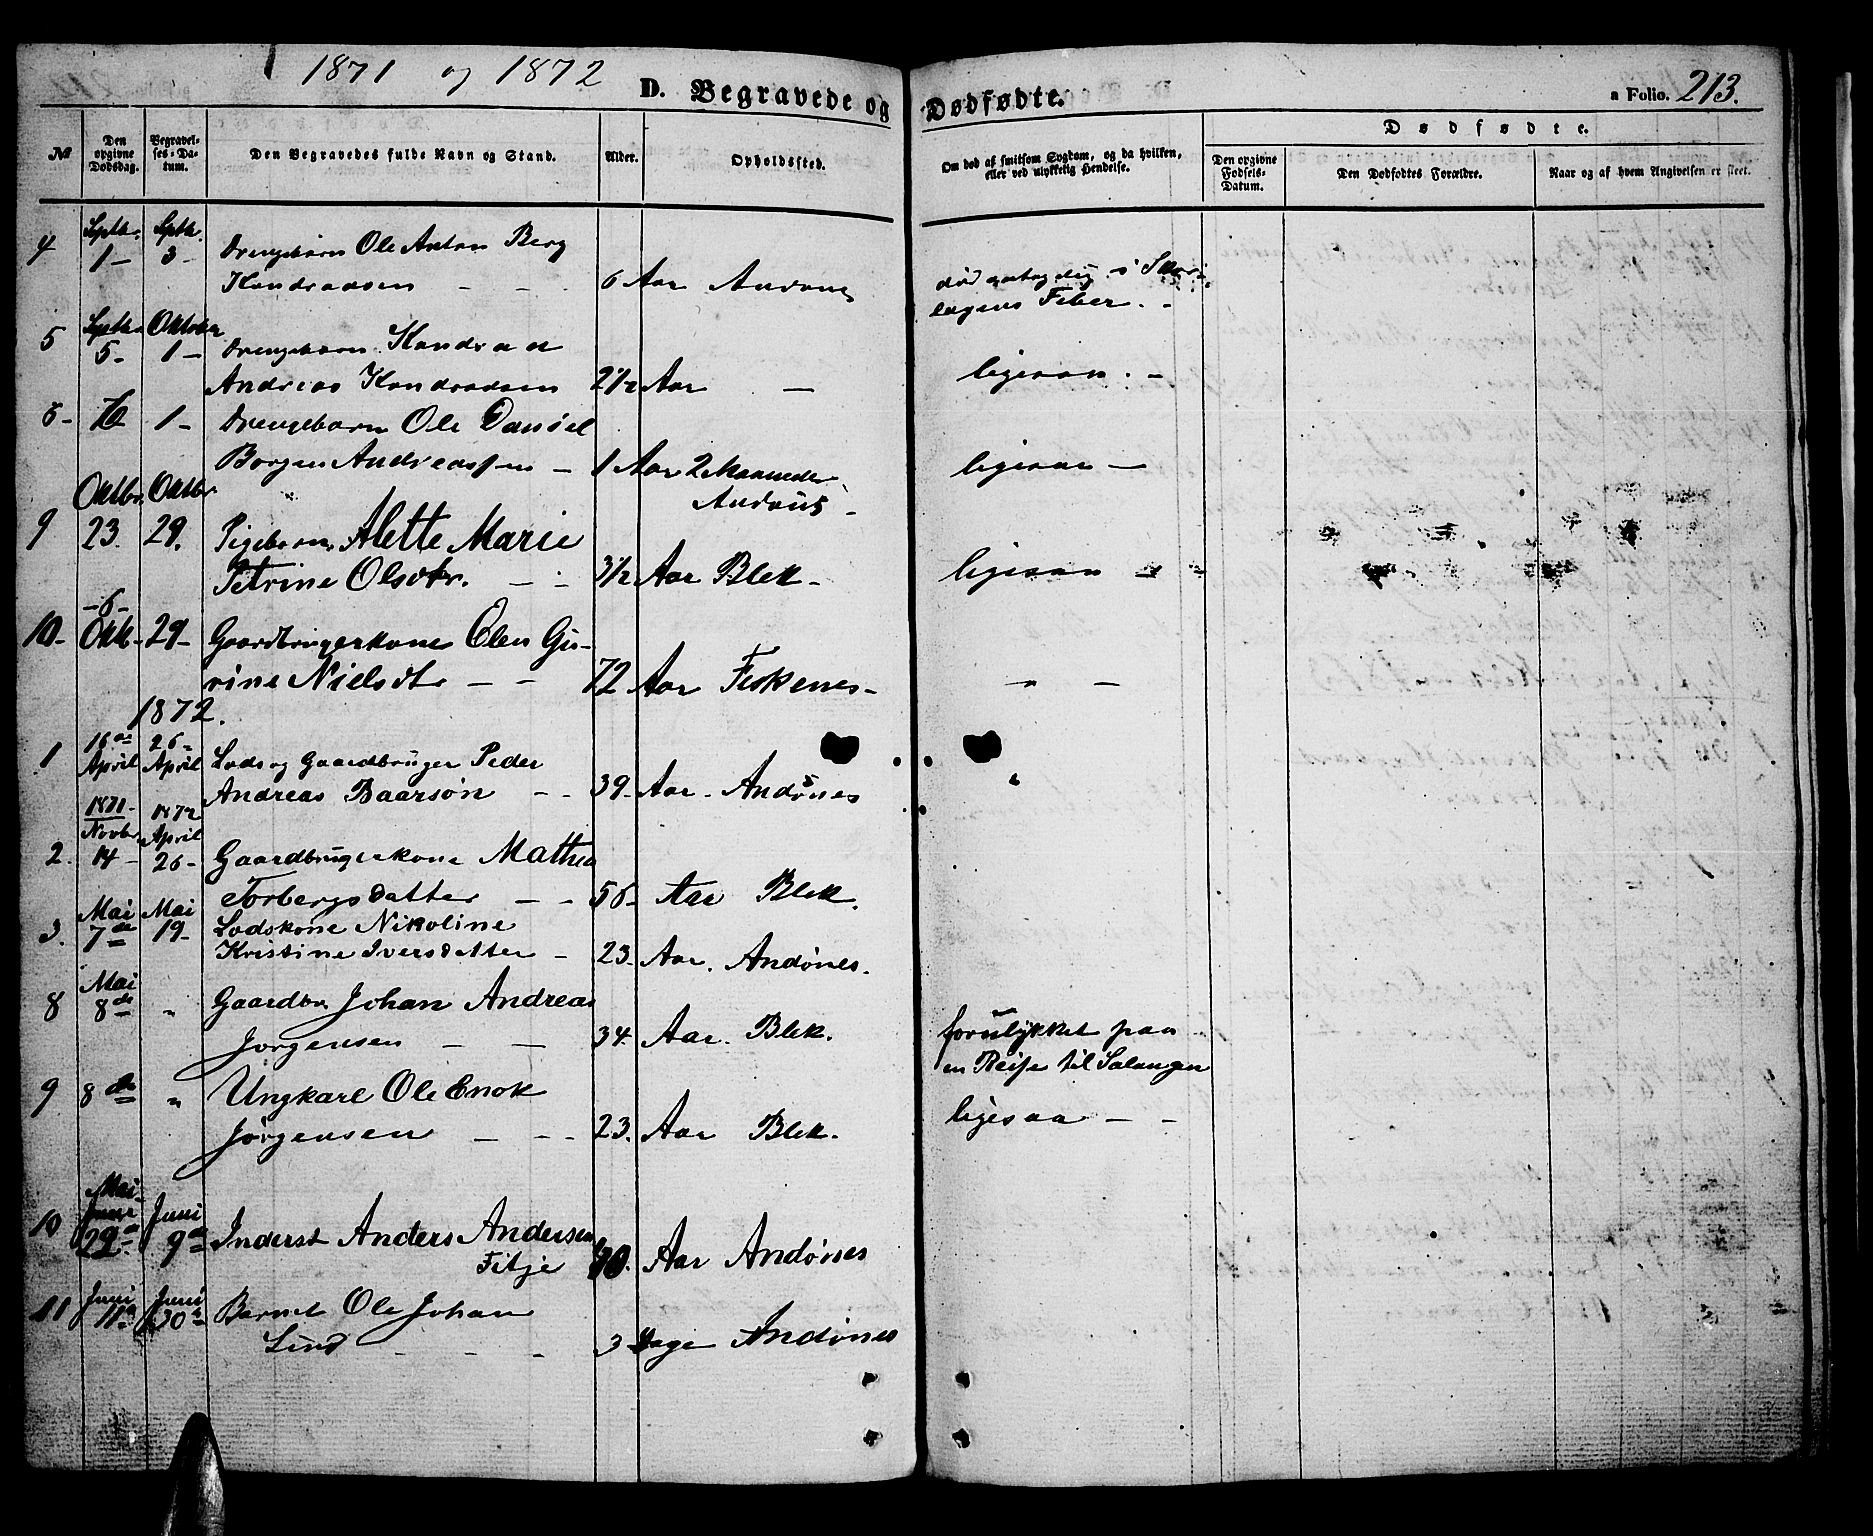 1871 og 1872
D. Begravede og Dødfødte.
a Folio. 213.
№
Den opgivne Dødsdag.
Begravelses-Datum.
Den Begravedes fulde Navn og Stand.
Alder.
Opholdssted.
Om død af smitsom Sygdom, og da hvilken, eller ved ulykkelig Hendelse.
Dødfødte.
Den opgivne Fødsels-Datum.
Den Dødfødtes Forældre.
Naar og af hvem Angivelsen er skeet.
Septbr. Septb.
4 1 - 3 - Drengebarn Ole Anton Berg
Kondradsen - - 6 Aar Andønes
død
lagens Feber. -
Septbr Oktober
5 5 - 1 - Drengebarn Kondrad
Andreas Kondradsen 2 1/2 Aar - ligesaa. -
1 - Drengebarn Ole Daniel
Borgen Andreassen - 1 Aar 2 Maaneder ligesaa -
Andønes -
Oktbr. Oktbr.
9 23. 29. Pigebarn Alette Marie
Petrine Olsdtr. - - 3 1/2 Aar Blek - ligesaa - -
- 6 -
10 - Okt - 29 - Gaardbrugerkone Olen Gu-
rine Nielsdt - - 72 Aar Fiskenes - - -
1872.
16de 26 -
1 April April Lods og Gaardbruger Peder
Andreas Baarsøn - - 39 - Aar - Andønes
1871 - 1872
Novbr April
2. 14 - 26 - Gaardbrugerkone Mathea
Torbergsdatter - - 56 - Aar Blek.
Mai Mai
3. 7de 19 - Lodskone Nikoline
Kristine Iversdatter - 23 - Aar. Andønes.
Mai
8 8de " Gaardbr Johan Andreas
Jørgensen - - 34. Aar. Blek.
forulykket paa
en Reise til Salangen
9 8de " Ungkarl Ole Enok
Jørgensen - - - 23. Aar Blek. ligesaa - -
Mai -
Juni
10 29de 9de Inderst Anders Andersen
Fitje 70. Aar Andønes
Juni Juni
11 11te 30te Barnet Ole Johan
Lind - - - 3 Dage Andønes